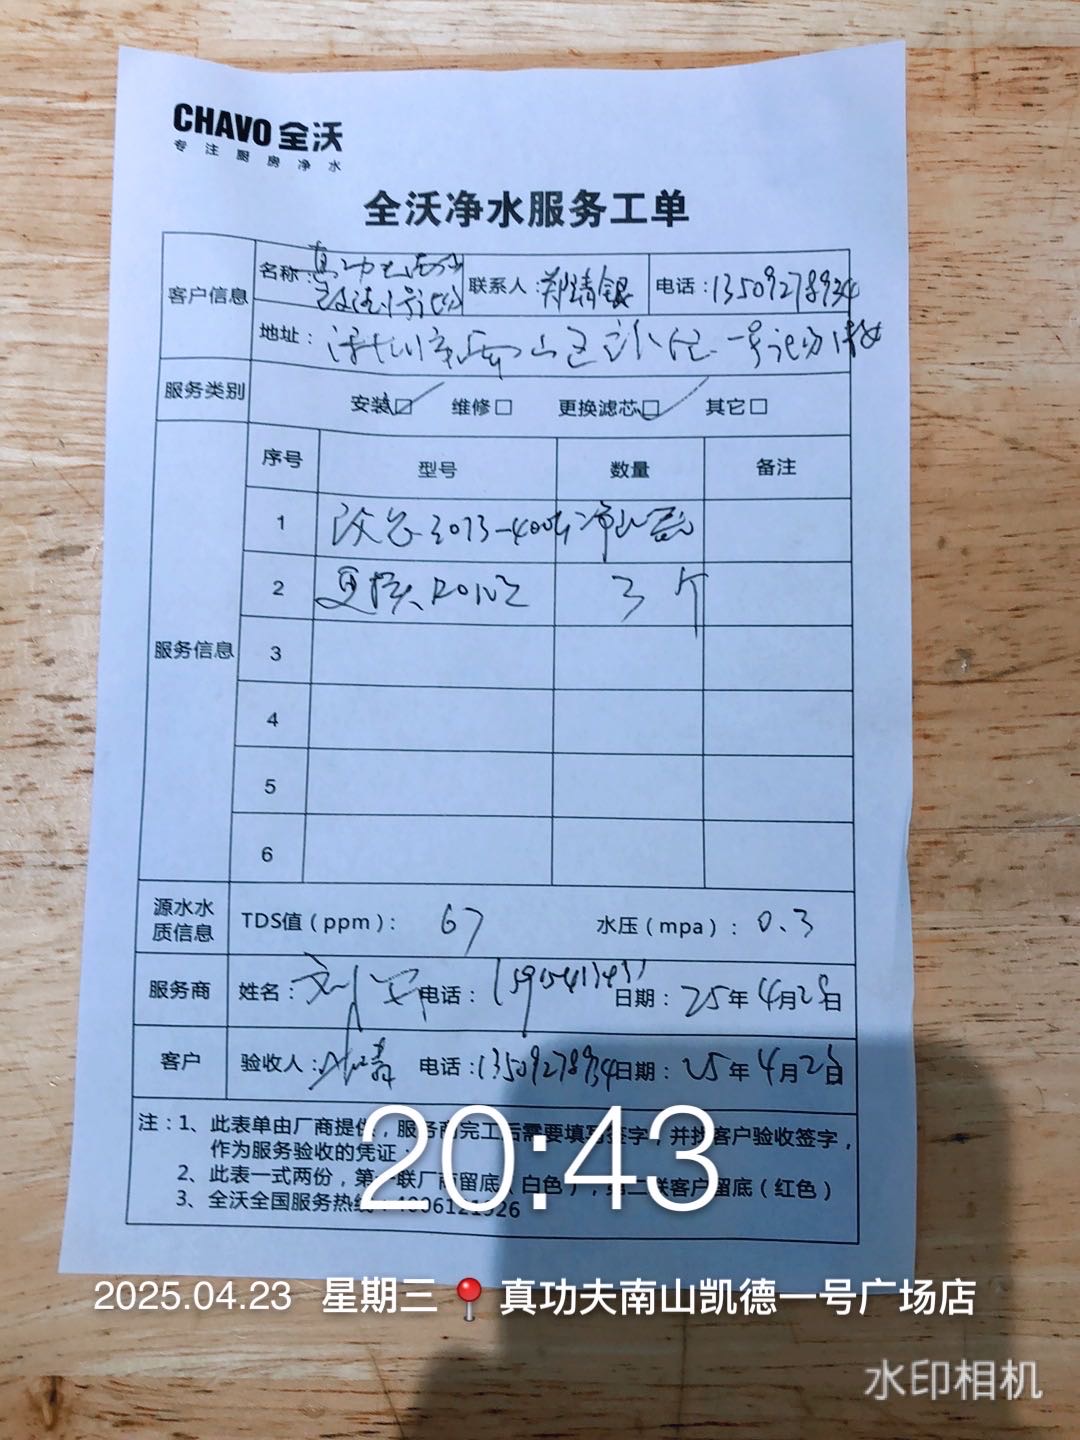 CHAVO 全沃
专注厨房净水
全沃净水服务工单
客户信息
名称：真功夫南山
凯德1号广场
联系人：郑靖银
电话：13509278934
地址：深圳市南山区 一号广场
服务类别
安装☑ 维修□ 更换滤芯☑ 其它□
服务信息
序号 型号 数量 备注
1 3073-400G净水器
2 更换 3个
3
4
5
6
源水水质信息
TDS值（ppm）： 67 水压（mpa）：0.3
服务商 姓名：刘 电话： 日期：25年4月23日
客户 验收人： 电话：13509278934 日期：25年4月23日
注：1、此表单由厂商提供，服务商完工后需要填写签字，并找客户验收签字，
作为服务验收的凭证；
2、此表一式两份，第一联厂商留底（白色），第二联客户留底（红色）
3、全沃全国服务热线：4006121926
20:43
2025.04.23 星期三 真功夫南山凯德一号广场店
水印相机